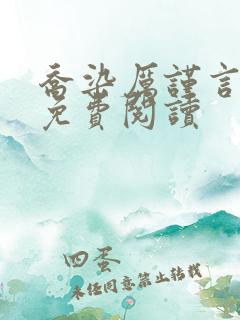 喬染厲謹言
免費閱讀
四蛋
未経同意禁止转载